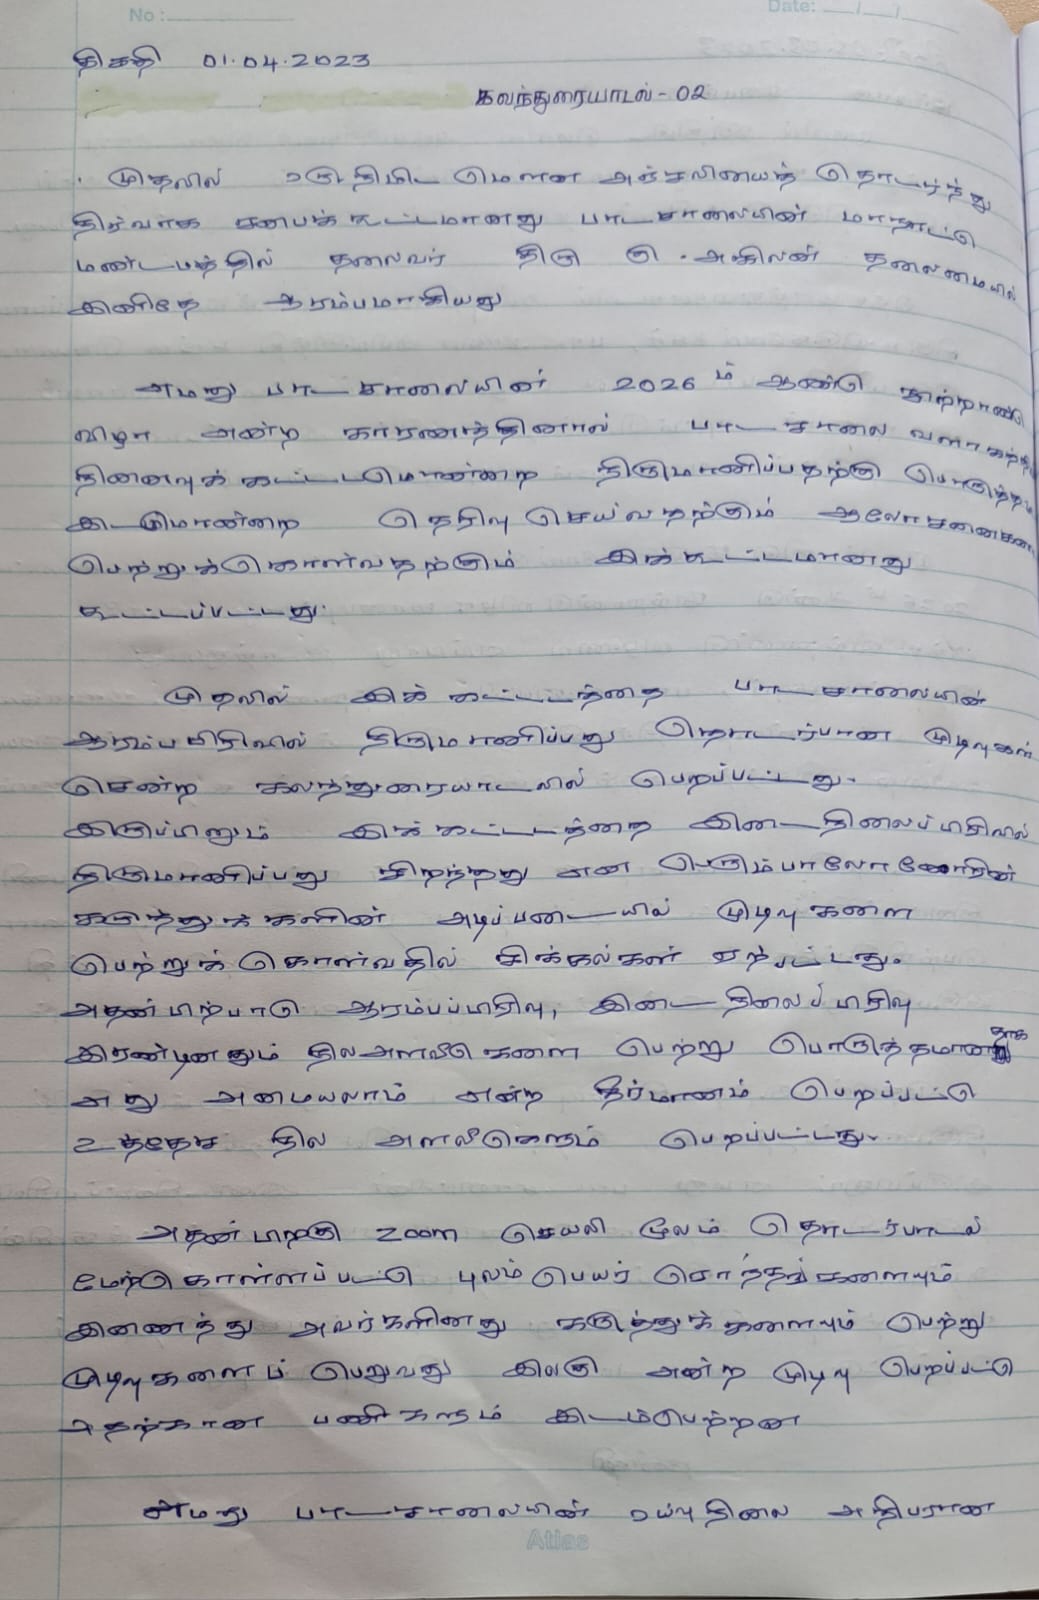 No :
Date: __/__/__
திகதி 01.04.2023
கலந்துரையாடல் - 02
முதலில் ஒரு நிமிட மௌன அஞ்சலியைத் தொடர்ந்து
நிர்வாக சபைக் கூட்டமானது பாடசாலையின் மாநாட்டு
மண்டபத்தில் தலைவர் திரு கு. அகிலன் தலைமையில்
இனிதே ஆரம்பமாகியது
எமது பாடசாலையின் 2026 ம் ஆண்டு நூற்றாண்டு
விழா என்ற காரணத்தினால் பாடசாலை வளாகத்தில்
நினைவுக் கட்டடமொன்றை நிருமாணிப்பதற்கு பொருத்தமான
இடமொன்றை தெரிவு செய்வதற்கும் ஆலோசனைகளை
பெற்றுக்கொள்வதற்கும் இக் கூட்டமானது
கூட்டப்பட்டது.
முதலில் இக் கட்டடத்தை பாடசாலையின்
ஆரம்பபிரிவில் நிருமாணிப்பது தொடர்பான முடிவுகள்
சென்ற கலந்துரையாடலில் பெறப்பட்டது.
இருப்பினும் இக் கட்டடத்தை இடைநிலைப்பிரிவில்
நிருமாணிப்பது சிறந்தது என பெரும்பாலோனோரின்
கருத்துக்களின் அடிப்படையில் முடிவுகளை
பெற்றுக் கொள்வதில் சிக்கல்கள் ஏற்பட்டது.
அதன்பிற்பாடு ஆரம்பப்பிரிவு, இடைநிலைப்பிரிவு
இரண்டினதும் நிலஅளவீடுகளை பெற்று பொருத்தமானதாக
எது அமையலாம் என்ற தீர்மானம் பெறப்பட்டு
உத்தேச நில அளவீடுகளும் பெறப்பட்டது.
அதன் பிறகு Zoom செயலி மூலம் தொடர்பாடல்
மேற்கொள்ளப்பட்டு புலம்பெயர் சொந்தங்களையும்
இணைத்து அவர்களினது கருத்துக்களையும் பெற்று
முடிவுகளைப் பெறுவது இலகு என்ற முடிவு பெறப்பட்டு
அதற்கான பணிகளும் இடம்பெற்றன
எமது பாடசாலையின் ஓய்வுநிலை அதிபரான
Atlas